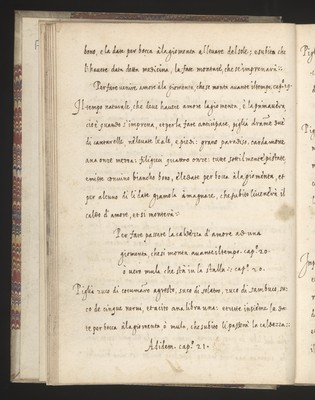 bono, e la dara per bocca à la giomenta al leuare del sole: e subito che
l'hauerà data detta medicina, la farà montare, che s'imprenarà
Per fare uenire amore à la giomenta, che si monta auante il tempo. cap. 19.
Il tempo naturale, che deue hauere amore la giomenta, è la primauera
cioè quando s'imprena, et per la fare anticipare, piglia dramme due
di cantarelle nel leuare le ale, e piedi: grano paradiso,
una onze meza: filigini quattro onze: tutte sottilmente pistate,
e miste con uino bianco bono, e le darà per bocca à la giomenta, et
per alcuno dì li darà gramola à magnare, che subito li uenerà il
caldo d'amore, et si monterà
Per fare passare la caldezza d'amore ad una
giomenta, che si monta auante il tempo. cap.º 20.
ò uero mula che stà in la stalla cap. 20.
Piglia zuco di cocumaro agresto, zuco di solatro, zuco di sambuco, zu-
co de cinque nerui, et aceto ana libra una: et tutte insieme la
te per bocca à la giomenta ò mula, che subito li passerà la caldezza
Ad idem. cap.º 21.